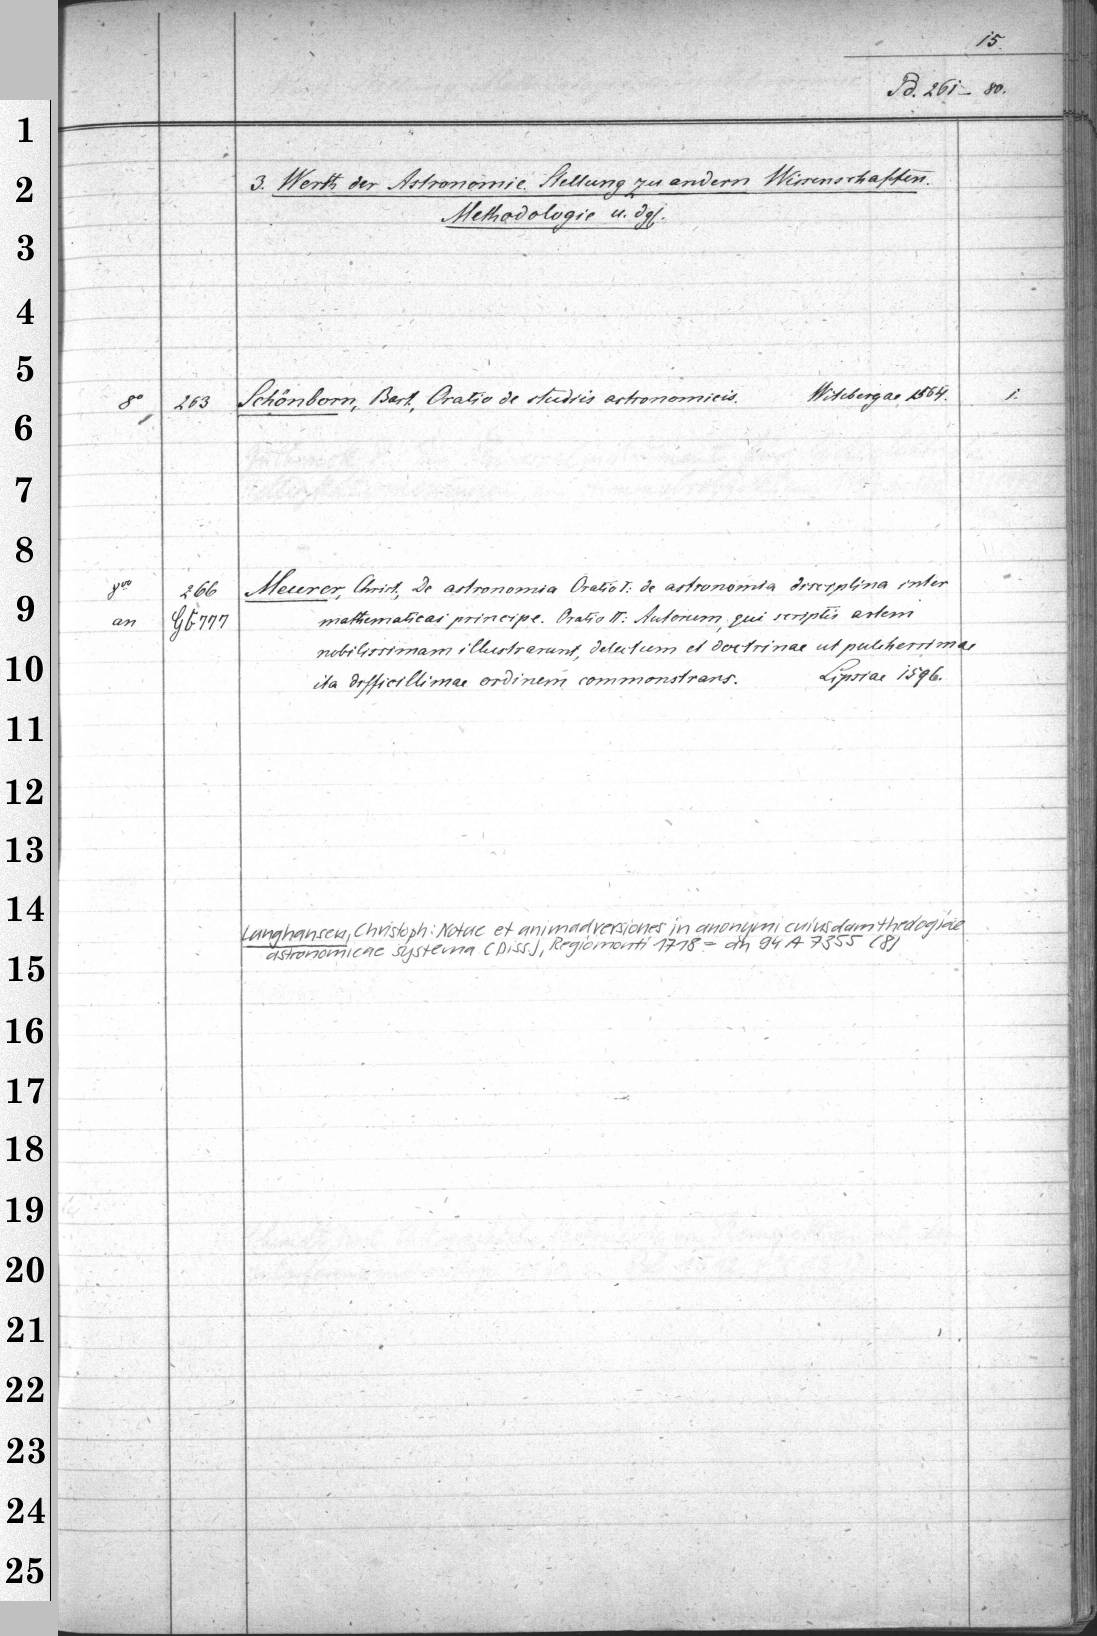 15.
Pd. 261-80.
1
2
3. Werth der Astronomie. Stellung zu andern Wissenschaften.
Methodologie u. dgl.
3
4
5
8° 263 Schönborn, Bart., Oratio de studiis astronomicis. Witebergae 1564. 1.
6
7
8
8vo 266 Meurer, Christ., De astronomia Oratio I: de astronomia disciplina inter
9
an Gb 777 mathematicas principe. Oratio II: Autorum, qui scriptis artem
nobilissimam illustrarunt, delectum et doctrinae ut pulcherrimae
10
ita difficillimae ordinem commonstrans. Lipsiae 1596.
11
12
13
14
Langhansen, Christoph: Notae et animadversiones in anonymi cuiusdam theologiae
astronomicae systema (Diss.), Regiomonti 1718 = an 94 A 7355 (8)
15
16
17
18
19
20
21
22
23
24
25